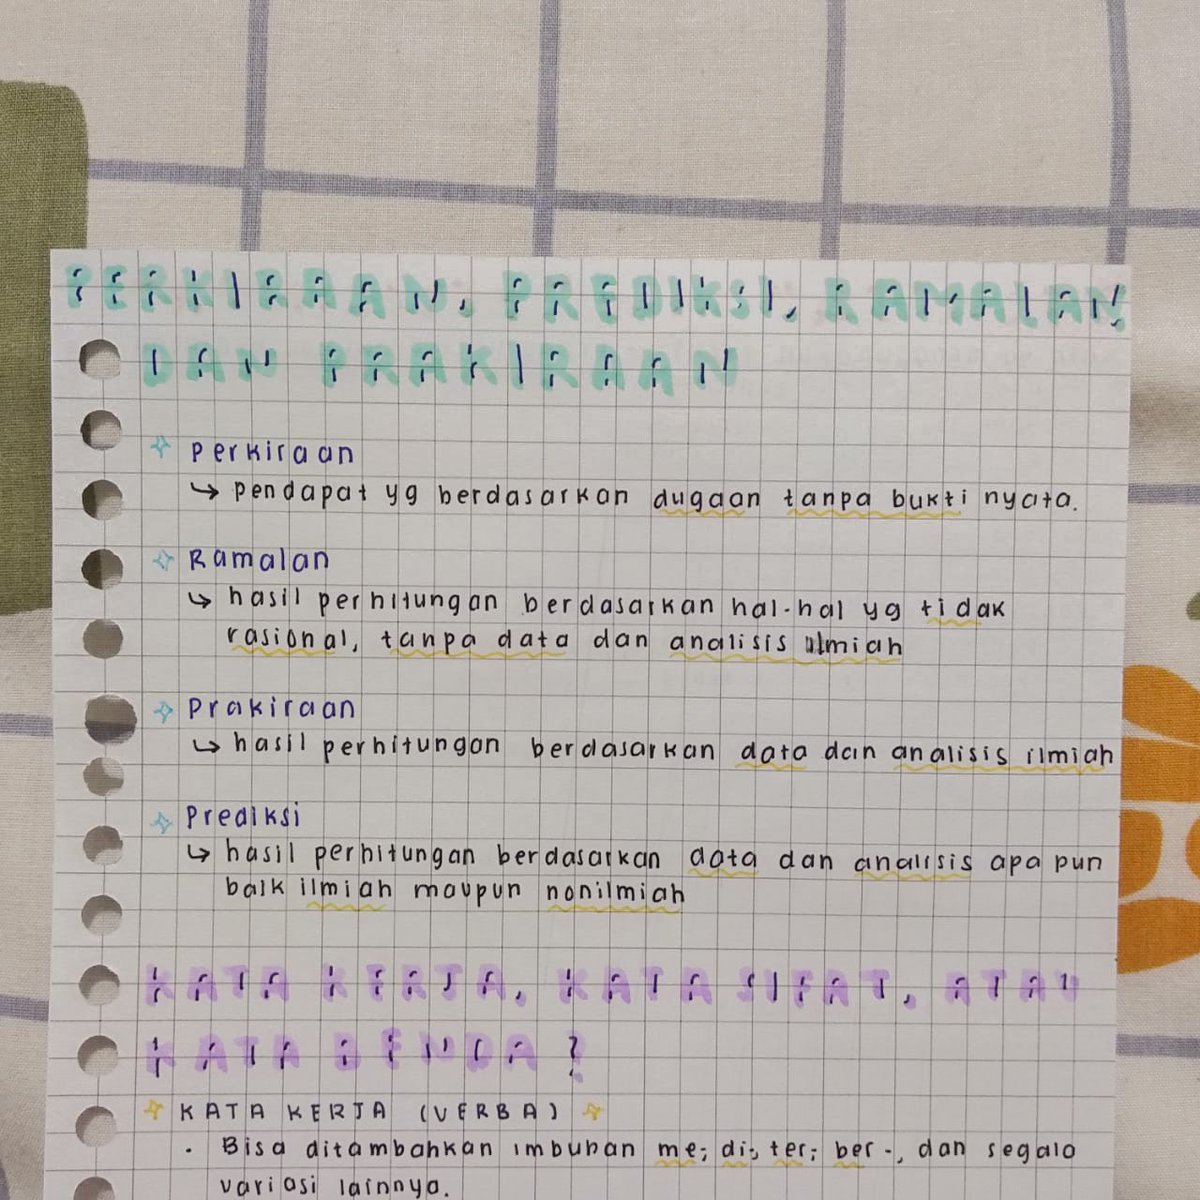 PERKIRAAN, PREDIKSI, RAMALAN,
DAN PRAKIRAAN
Perkiraan
↳ pendapat yg berdasarkan dugaan tanpa bukti nyata.
Ramalan
↳ hasil perhitungan berdasarkan hal-hal yg tidak
rasional, tanpa data dan analisis ilmiah
Prakiraan
↳ hasil perhitungan berdasarkan data dan analisis ilmiah
Prediksi
↳ hasil perhitungan berdasarkan data dan analisis apa pun
baik ilmiah maupun nonilmiah
KATA KERJA, KATA SIFAT, ATAU
KATA BENDA?
KATA KERJA (VERBA)
• Bisa ditambahkan imbuhan me-, di-, ter-, ber-, dan segala
variasi lainnya.